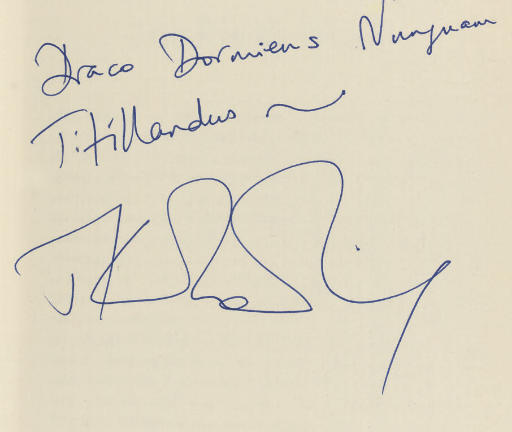 Draco Dormiens Nunquam
Titillandus ~
JK Rowling